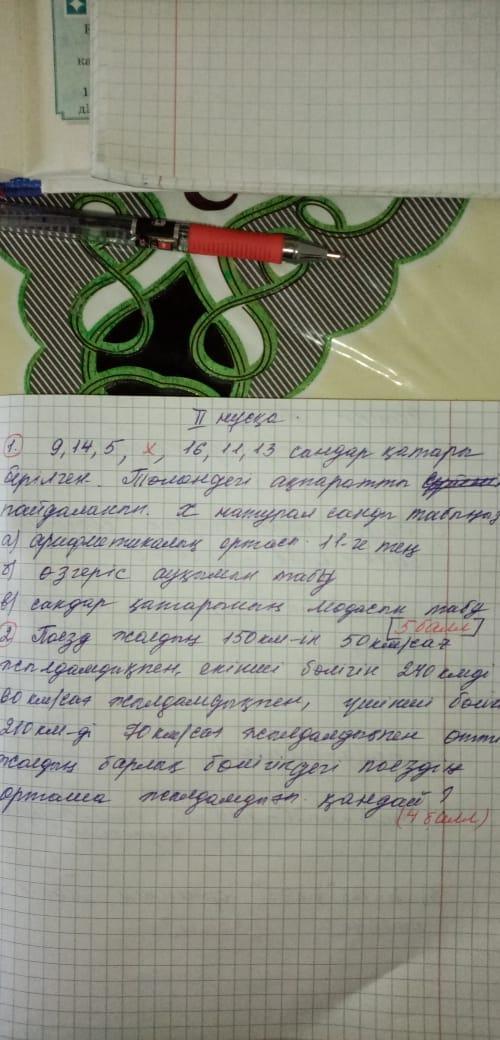 II нұсқа.
1. 9, 14, 5, x, 16, 11, 13 сандар қатары
берілген. Төмендегі ақпаратты
пайдаланып. X натурал санды табыңыз
а) арифметикалық ортасы 11-ге тең
б) өзгеріс ауқымын табу
в) сандар қатарының модасын табу
[5 балл]
2. Поезд жолдың 150 км-ін 50 км/сағ
жылдамдықпен, екінші бөлігін 240 кмді
80 км/сағ жылдамдықпен, үшінші бөлігі
210 км-ді 70 км/сағ жылдамдықпен өтті
жолдың барлық бөлігіндегі поездің
орташа жылдамдығы қандай?
(4 балл)